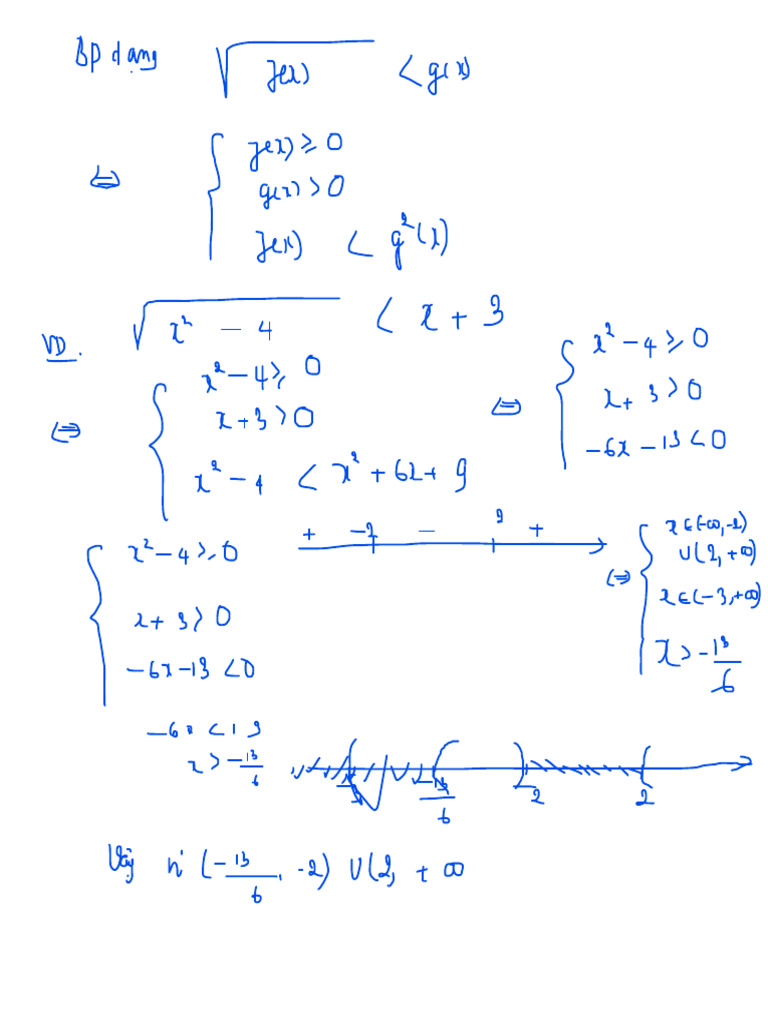 BP dạng √f(x) < g(x)
⇔ { f(x) ≥ 0
g(x) > 0
f(x) < g²(x)
VD. √x² − 4 < x + 3
⇔ { x² − 4 ≥ 0
x + 3 > 0
x² − 4 < x² + 6x + 9
⇔ { x² − 4 ≥ 0
x + 3 > 0
−6x − 13 < 0
{ x² − 4 ≥ 0
x + 3 > 0
−6x − 13 < 0
+ −2 − 2 +
⇔ { x ∈ (−∞, −2)
∪ (2, +∞)
x ∈ (−3, +∞)
x > −13/6
−6x < 13
x > −13/6
−3 −13/6 −2 2
Vậy n° (−13/6, −2) ∪ (2, +∞